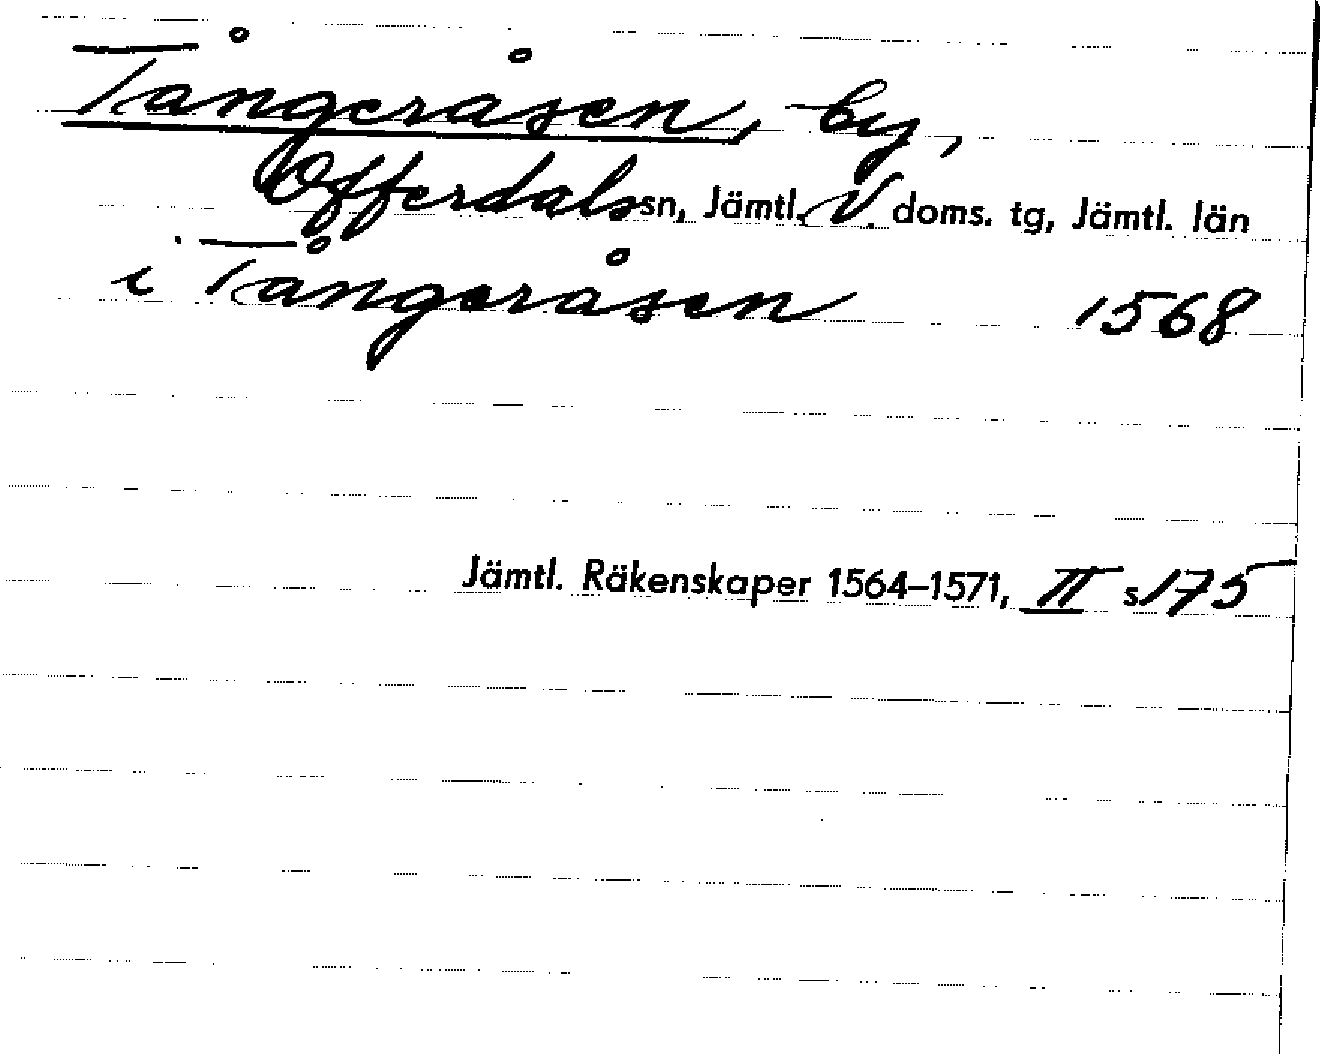 Tångeråsen, by,
Offerdals sn, Jämtl. V. doms. tg, Jämtl. län
i Tångeråsen 1568
Jämtl. Räkenskaper 1564–1571, II s 175